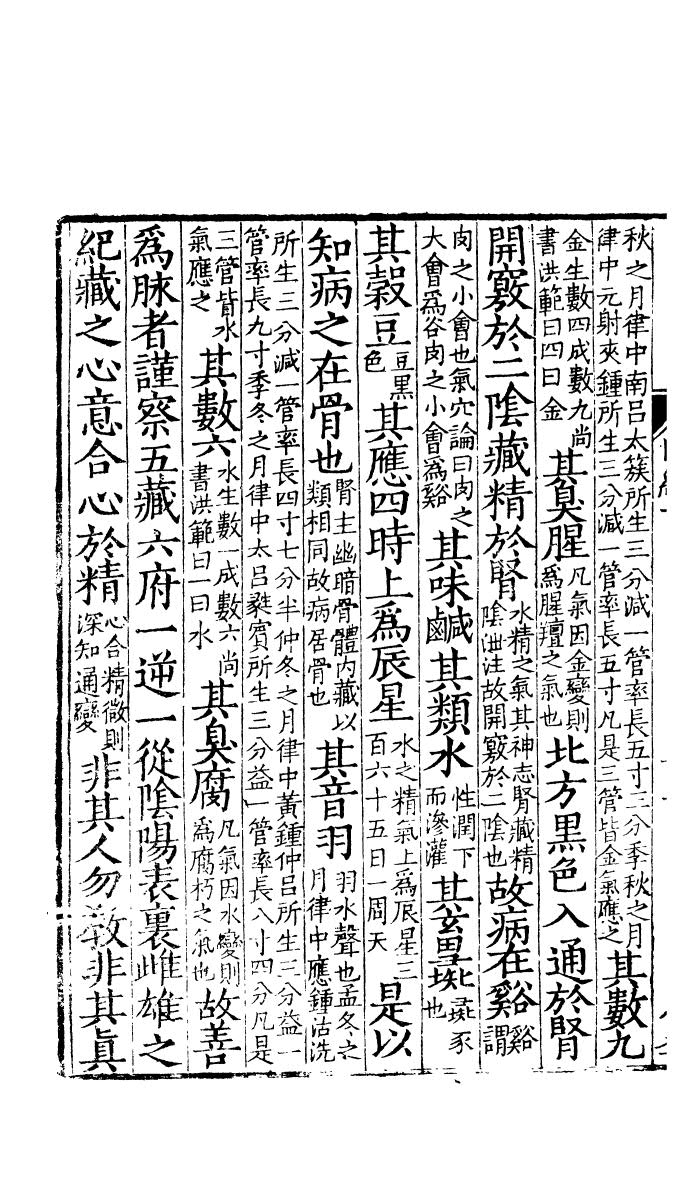 秋之月律中南呂太簇所生三分減一管率長五寸三分季秋之月律中元射夾鍾所生三分減一管率長五寸凡是三管皆金氣應之其數九
金生數四成數九尚書洪範曰四曰金其臭腥凡氣因金變則為腥羶之氣也北方黑色入通於腎
開竅於二陰藏精於腎水精之氣其神志腎藏精陰泄注故開竅於二陰也故病在谿谿謂
肉之小會也氣穴論曰肉之大會為谷肉之小會為谿其味鹹其類水性潤下而滲灌其畜彘彘豕也
其穀豆豆黑色其應四時上為辰星水之精氣上為辰星三百六十五日一周天是以
知病之在骨也腎主幽暗骨體內藏以類相同故病居骨也其音羽羽水聲也孟冬之月律中應鍾沽洗
所生三分減一管率長四寸七分半仲冬之月律中黃鍾仲呂所生三分益一管率長九寸季冬之月律中太呂蕤賓所生三分益一管率長八寸四分凡是
三管皆水氣應之其數六水生數一成數六尚書洪範曰一曰水其臭腐凡氣因水變則為腐朽之氣也故善
為脉者謹察五藏六府一逆一從陰陽表裏雌雄之
紀藏之心意合心於精心合精微則深知通變非其人勿教非其眞